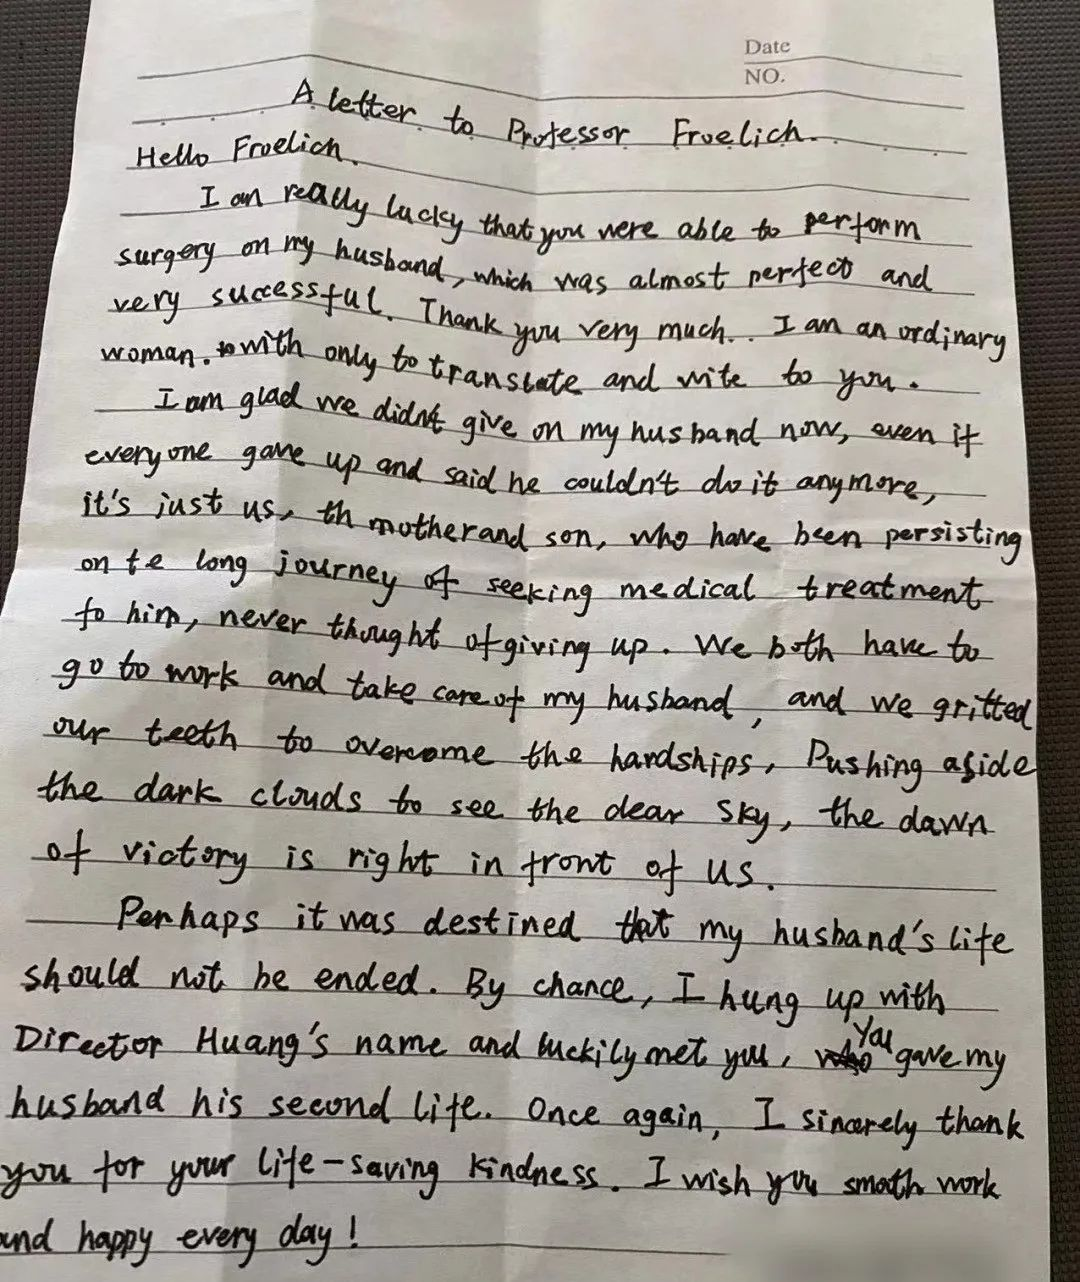 Date
NO.
A letter to Professor Froelich.
Hello Froelich.
I am really lucky that you were able to perform
surgery on my husband, which was almost perfect and
very successful. Thank you very much. I am an ordinary
woman. with only to translate and write to you.
I am glad we didn't give on my husband now, even if
everyone gave up and said he couldn't do it anymore,
it's just us, th mother and son, who have been persisting
on te long journey of seeking medical treatment
fo him, never thought of giving up. We both have to
go to work and take care of my husband, and we gritted
our teeth to overcome the hardships, Pushing aside
the dark clouds to see the dear sky, the dawn
of victory is right in front of us.
Perhaps it was destined that my husband's life
should not be ended. By chance, I hung up with
Director Huang's name and luckily met you, You gave my
husband his second life. Once again, I sincerely thank
you for your life-saving kindness. I wish you smoth work
and happy every day!